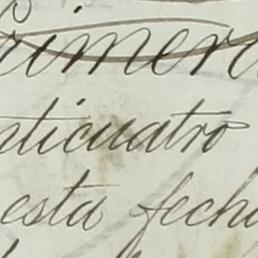 rimera
nticuatro
esta fecha